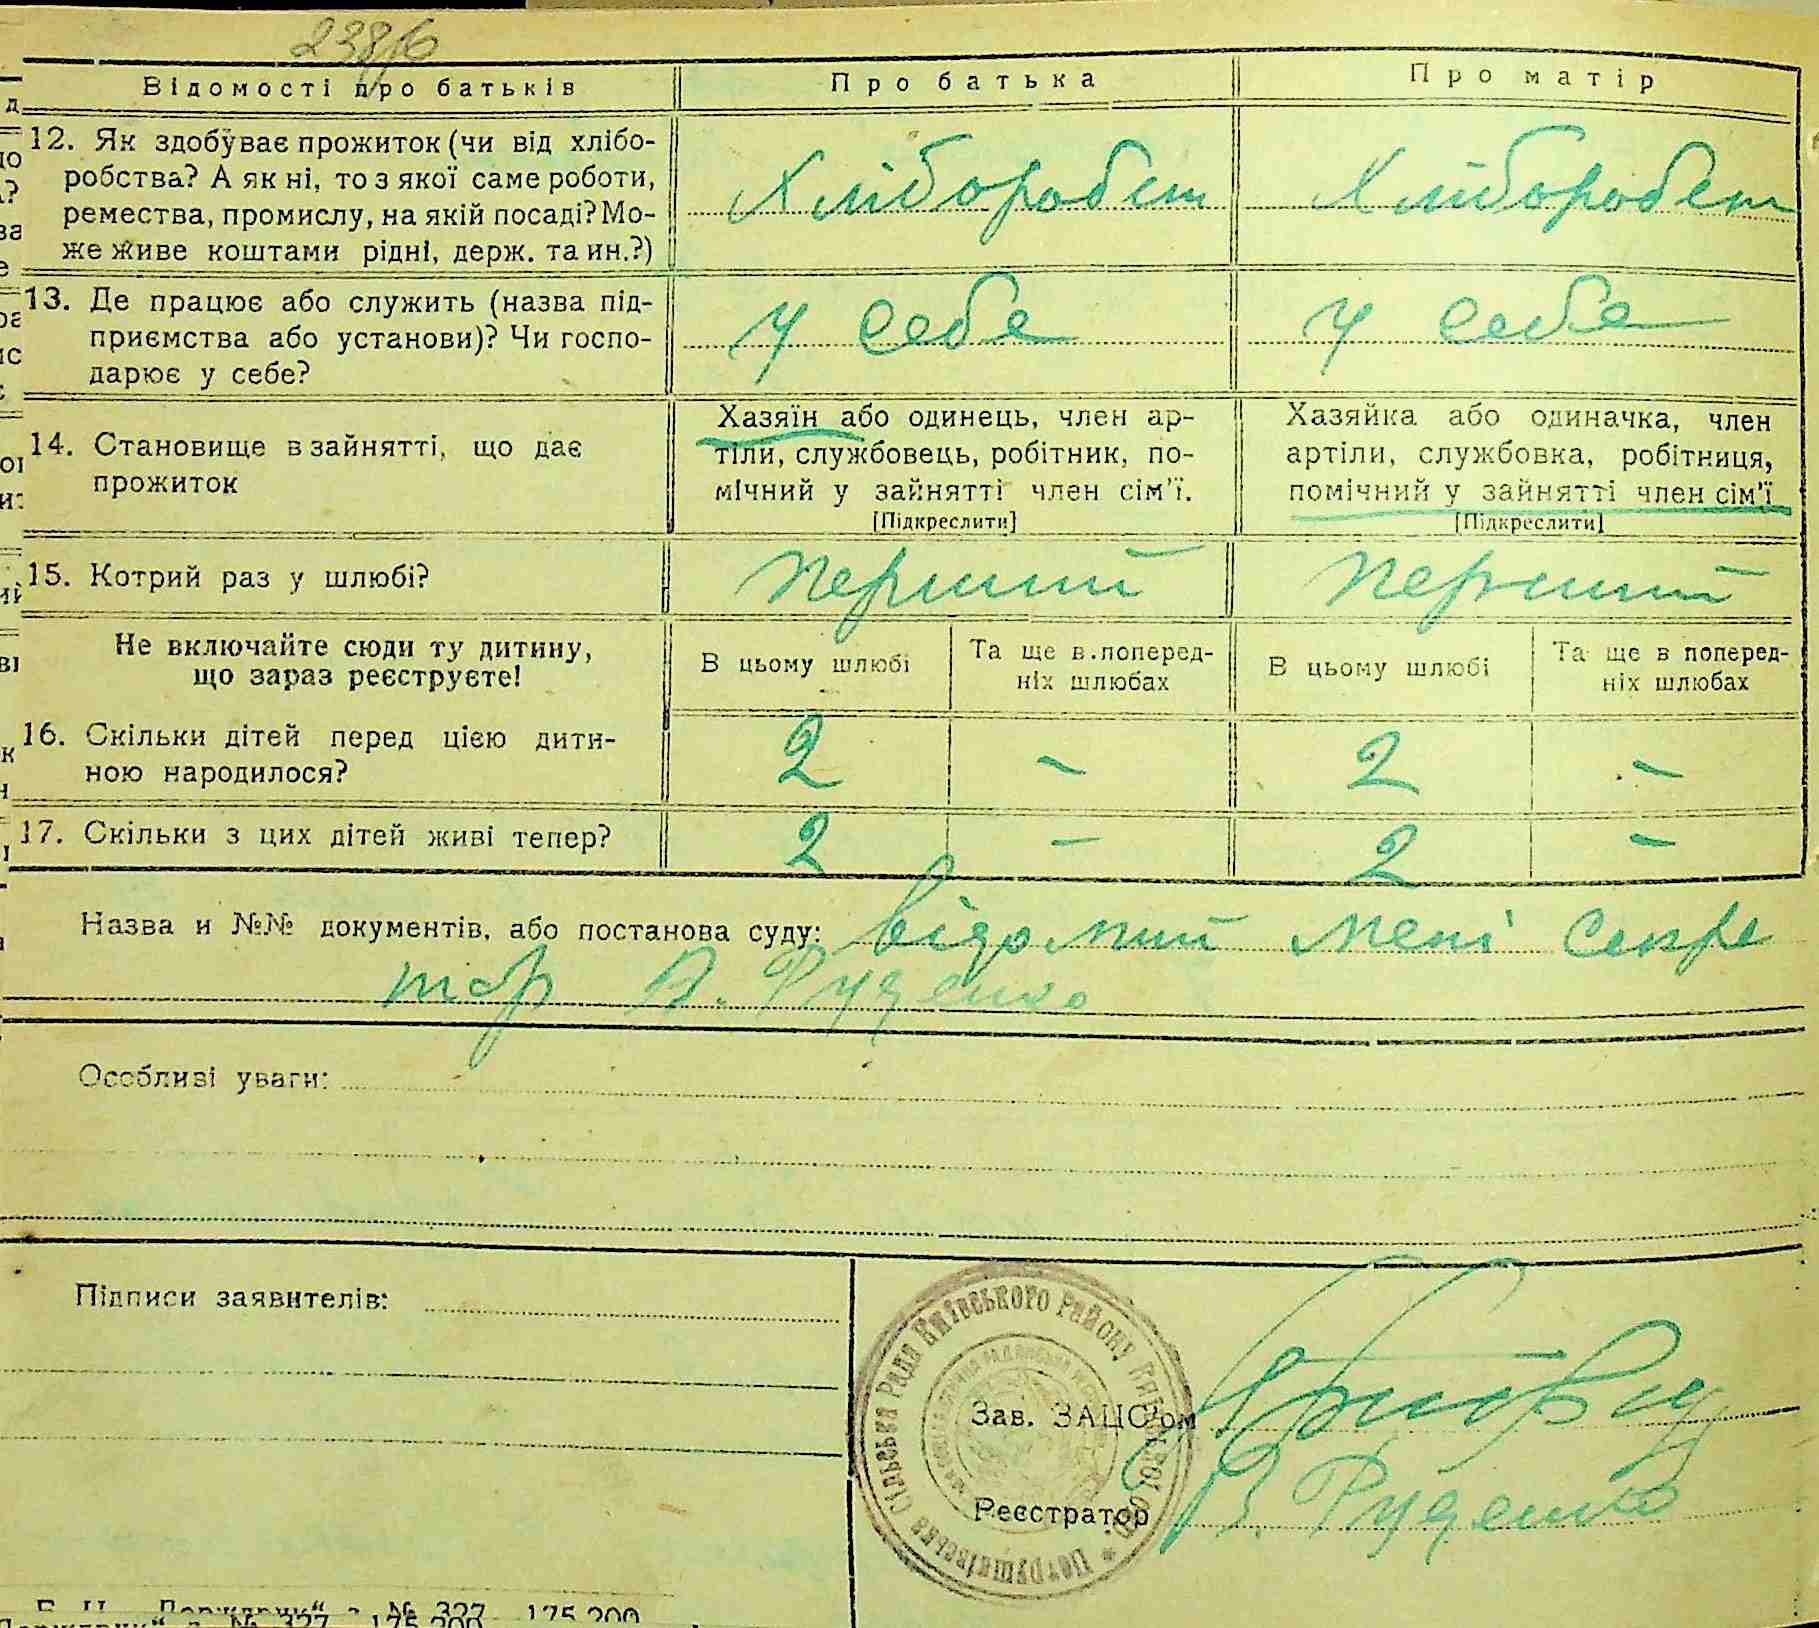 238/6
Відомості про батьків
Про батька
Про матір
12. Як здобуває прожиток (чи від хлібо-
робства? А як ні, то з якої саме роботи,
ремества, промислу, на якій посаді? Мо-
же живе коштами рідні, держ. та ин.?)
Хліборобст
Хліборобст
13. Де працює або служить (назва під-
приємства або установи)? Чи госпо-
дарює у себе?
У себе
У себе
14. Становище в зайнятті, що дає
прожиток
Хазяїн або одинець, член ар-
тіли, службовець, робітник, по-
мічний у зайнятті член сім'ї.
[Підкреслити]
Хазяйка або одиначка, член
артіли, службовка, робітниця,
помічний у зайнятті член сім'ї
[Підкреслити]
15. Котрий раз у шлюбі?
перший
перший
Не включайте сюди ту дитину,
що зараз реєструєте!
В цьому шлюбі
Та ще в поперед-
ніх шлюбах
В цьому шлюбі
Та ще в поперед-
ніх шлюбах
16. Скільки дітей перед цією дити-
ною народилося?
2 – 2 –
17. Скільки з цих дітей живі тепер?
2 – 2 –
Назва и №№ документів, або постанова суду: відомий мені секре
тар В. Руденко
Особливі уваги:
Підписи заявителів:
Петрушківська Сільська Рада Київського Району Київської Окр.
Зав. ЗАЦС'ом
Реєстратор В. Руденко
№ 327 175.200
№ 327 175.200